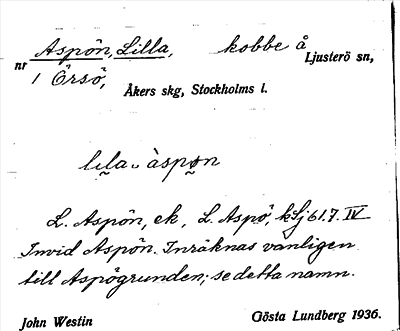 Aspön, Lilla, kobbe å Ljusterö sn,
nr 1 Örsö,
Åkers skg, Stockholms l.
lila äspøn
L. Aspön, ek, L. Aspö, kSj 61.7. IV
Invid Aspön. Inräknas vanligen
till Aspögrunden; se detta namn.
John Westin Gösta Lundberg 1936.